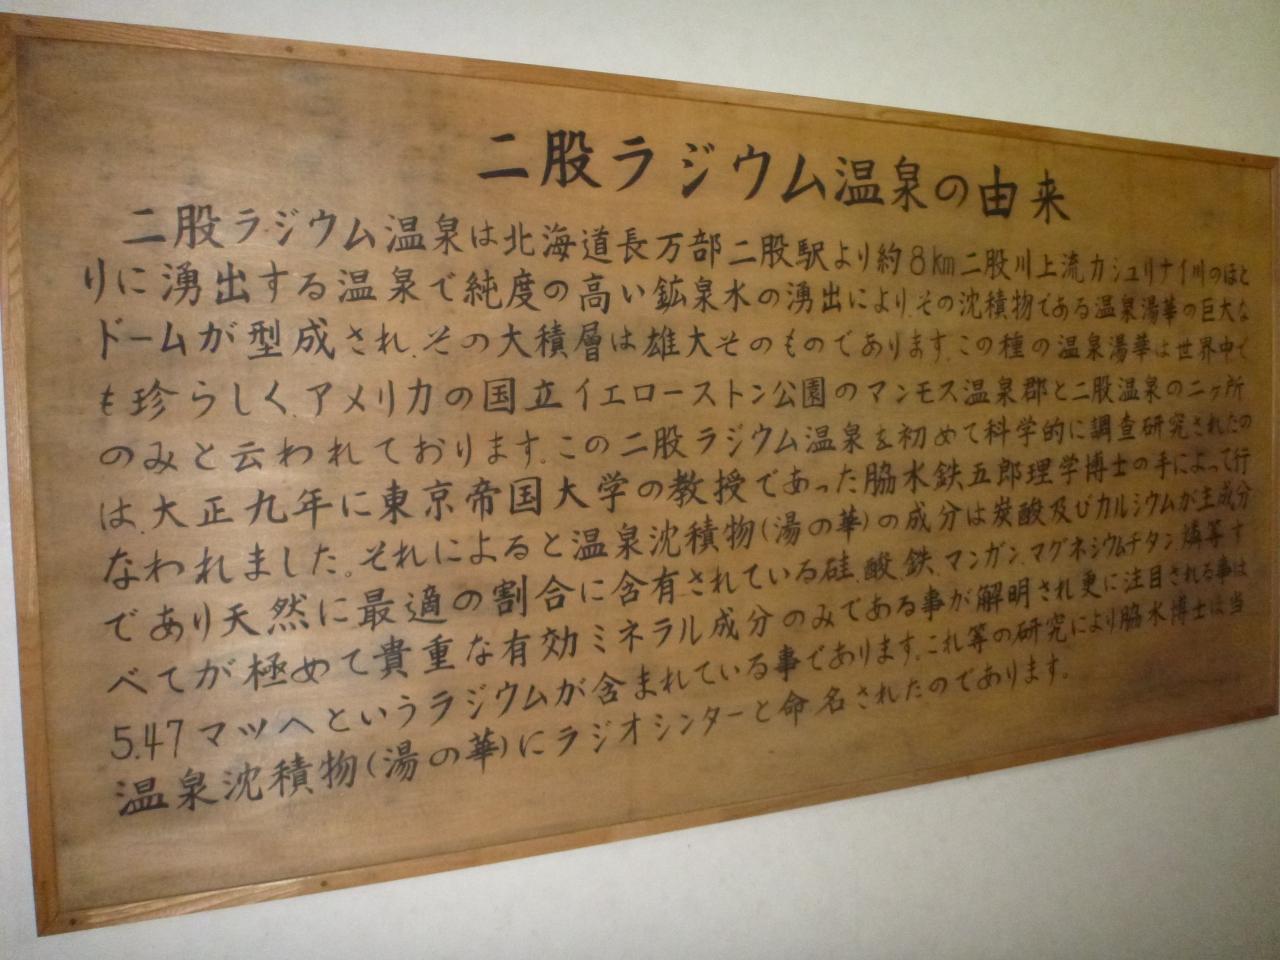 二股ラジウム温泉の由来
二股ラジウム温泉は北海道長万部二股駅より約8km二股川上流カシュリナイ川のほと
りに湧出する温泉で純度の高い鉱泉水の湧出によりその沈積物である温泉湯華の巨大な
ドームが型成され、その大積層は雄大そのものであります。この種の温泉湯華は世界中で
も珍らしく、アメリカの国立イエローストン公園のマンモス温泉郡と二股温泉の二ヶ所
のみと云われております。この二股ラジウム温泉を初めて科学的に調査研究されたの
は、大正九年に東京帝国大学の教授であった脇水鉄五郎理学博士の手によって行
なわれました。それによると温泉沈積物(湯の華)の成分は炭酸及びカルシウムが主成分
であり天然に最適の割合に含有されている硅酸、鉄、マンガン、マグネシウムチタン、燐等す
べてが極めて貴重な有効ミネラル成分のみである事が解明され更に注目される事は
5.47マッヘというラジウムが含まれている事であります。これ等の研究により脇水博士は当
温泉沈積物(湯の華)にラジオシンターと命名されたのであります。